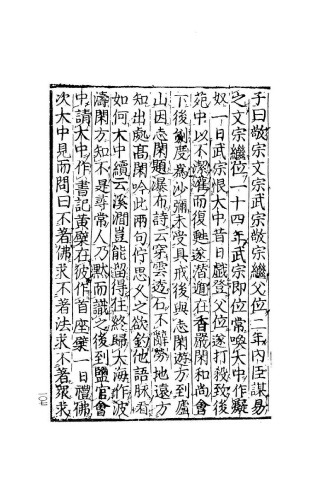 子曰敬宗文宗武宗敬宗繼父位二年內臣謀易
之文宗繼位一十四年武宗即位常喚大中作癡
奴一日武宗恨大中昔日戲登父位遂打殺致後
苑中以不潔灌而復甦遂潛遁在香嚴閑和尚會
下後剃度為沙彌未受具戒後與志閑遊方到廬
山因志閑題瀑布詩云穿雲透石不辭勞地遠方
知出處高閑吟此兩句佇思久之欲釣他語脉看
如何大中續云溪澗豈能留得住終歸大海作波
濤閑方知不是尋常人乃默而識之後到鹽官會
中請大中作書記黃檗在彼作首座檗一日禮佛
次大中見而問曰不著佛求不著法求不著眾求
104